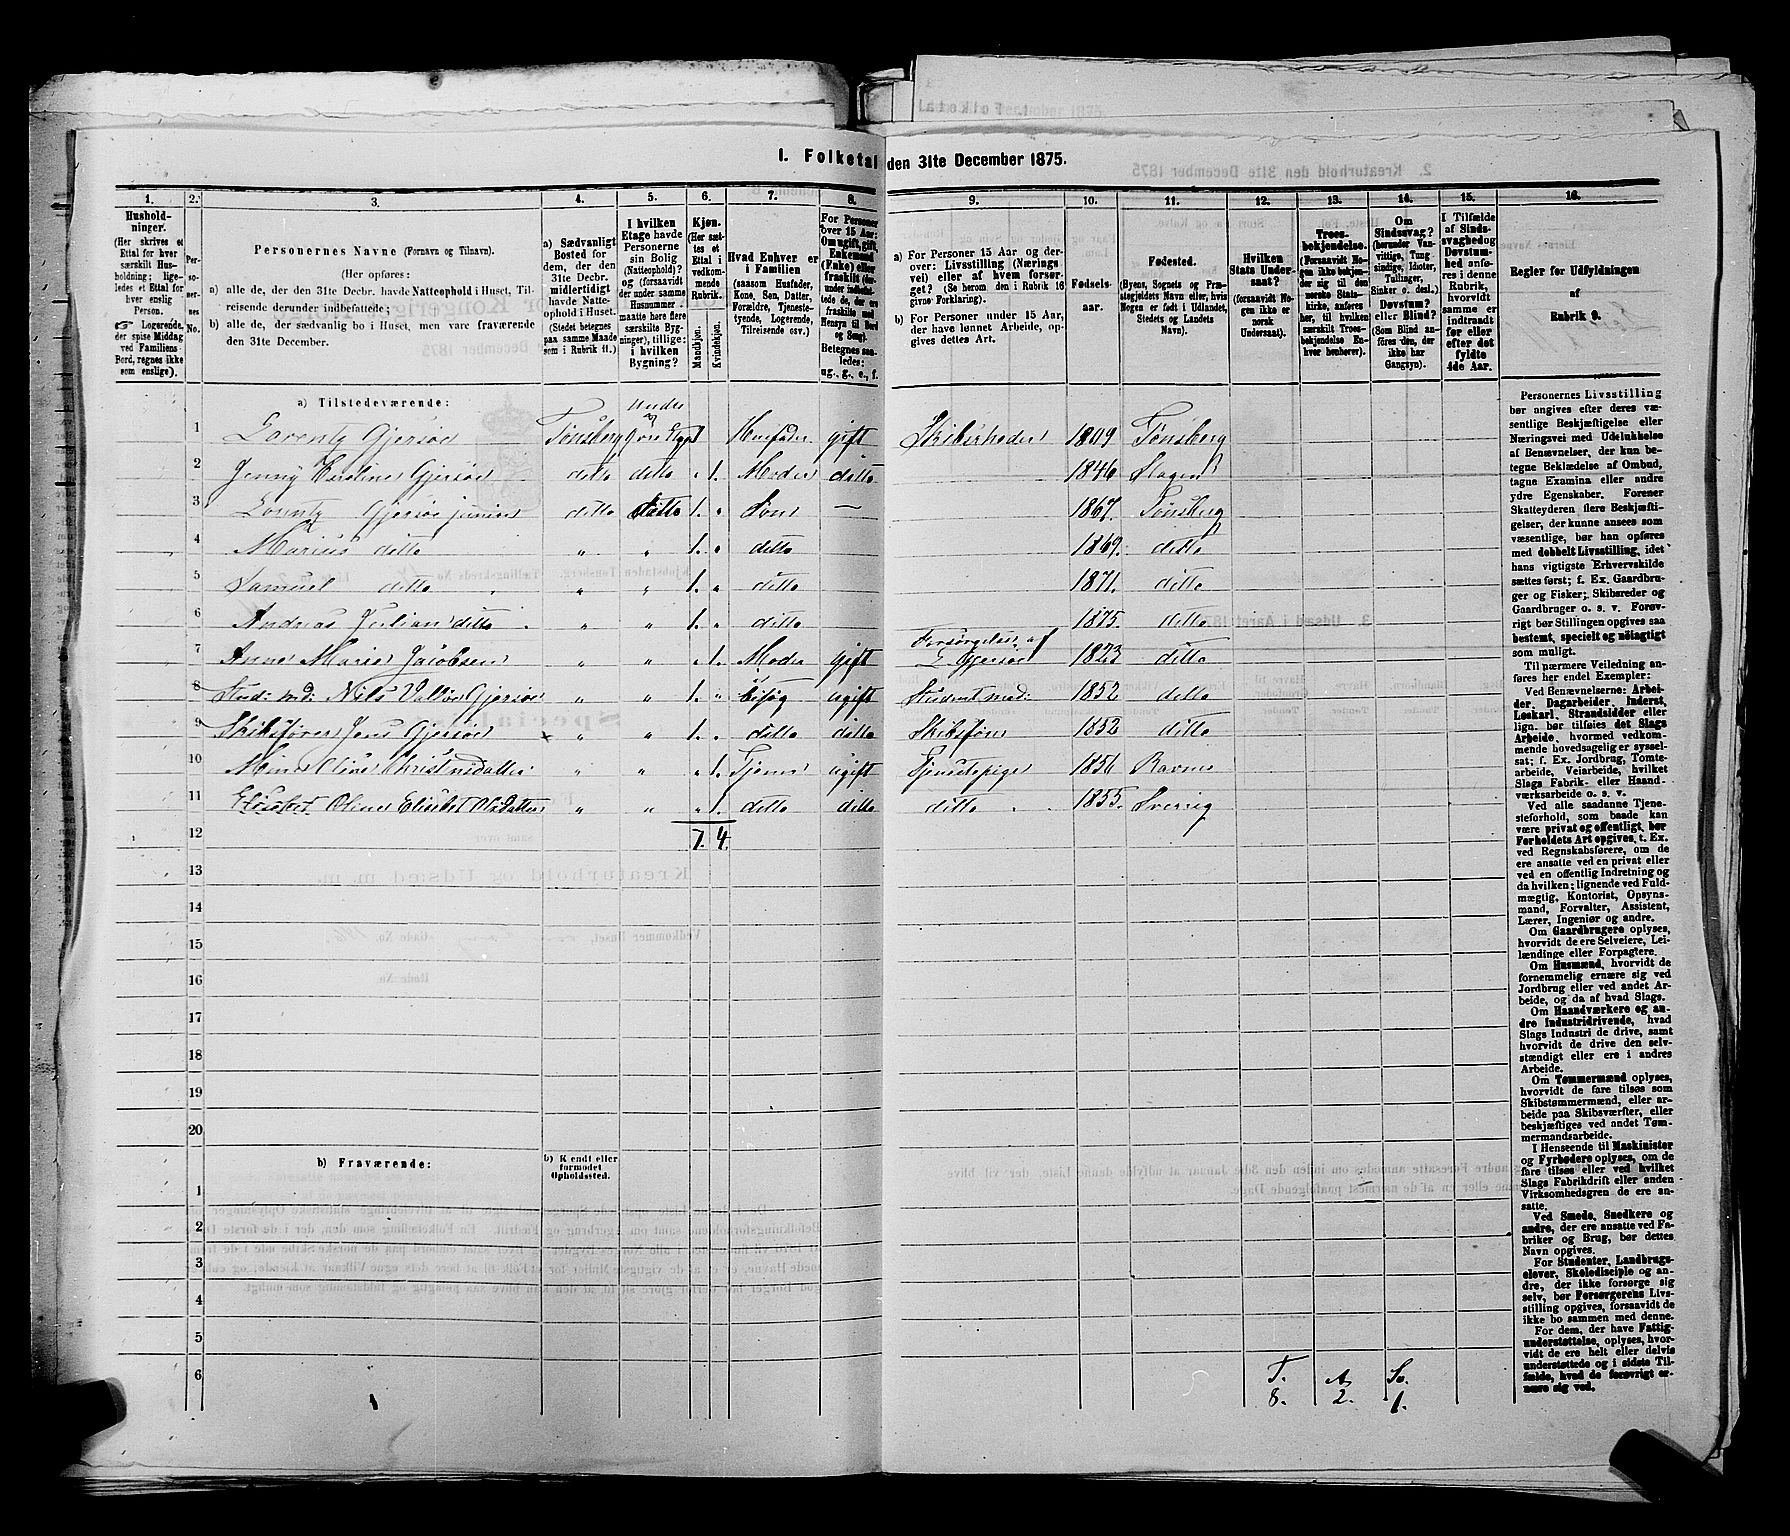 I. Folketal den 31te December 1875.
1. 2. 3. 4. 5. 6. 7. 8. 9. 10. 11. 12. 13. 14. 15. 16.
Hushold-
ninger.
(Her skrives et
Ettal for hver
særskilt Hus-
holdning; lige-
ledes et Ettal for
hver enslig
Person.
☞ Logerende,
der spise Middag
ved Familiens
Bord, regnes ikke
som enslige).
Per-
so-
ner-
nes
No.
Personernes Navne (Fornavn og Tilnavn).
(Her opføres:
a) alle de, der den 31te Decbr. havde Natteophold i Huset, Til-
reisende derunder indbefattede;
b) alle de, der sædvanlig bo i Huset, men vare fraværende
den 31te December.
a) Sædvanligt
Bosted for
dem, der den
31te Decbr.
midlertidigt
havde Natte-
ophold i Huset.
(Stedet betegnes
paa samme Maade
som i Rubrik 11.)
I hvilken
Etage havde
Personerne
sin Bolig
(Natteophold)?
og (forsaavidt
der under samme
Husnummer
maatte høre flere
særskilte Byg-
ninger), tillige:
i hvilken
Bygning?
Kjøn.
(Her sæt-
tes et
Ettal i
vedkom-
mende
Rubrik.
Mandkjøn.
Kvindekjøn.
Hvad Enhver er
i Familien
(saasom Husfader,
Kone, Søn, Datter,
Forældre, Tjeneste-
tyende, Logerende,
Tilreisende osv.)
For Personer
over 15 Aar:
Om ugift, gift,
Enkemand
(Enke) eller
fraskilt
Betegnes saa-
ledes:
ug., g., e., f.
a) For Personer 15 Aar og der-
over: Livsstilling (Nærings
vei) eller af hvem forsør-
get? (Se herom den i Rubrik 16
givne Forklaring).
b) For Personer under 15 Aar,
der have lønnet Arbeide, op-
gives dettes Art.
Fødsels-
aar.
Fødested.
(Byens, Sognets og Præ-
stegjeldets Navn eller, hvis
Nogen er født i Udlandet,
Stedets og Landets
Navn).
Hvilken
Stats Under-
saat?
(forsaavidt No-
gen ikke er
norsk
Undersaat).
Troes-
bekjendelse.
(Forsaavidt No-
gen ikke bekjen-
der sig til den
norske Stats-
kirke, anføres
her, til hvilken
særskilt Troes-
bekjendelse En-
hver henhører).
Om
Sindssvag?
(herunder Van-
vittige, Tung-
sindige, Idioter,
Tullinger,
Sinker o. desl.)
Døvstum?
eller Blind?
(Som Blind an-
føres den, der
ikke har
Gangsyn).
I Tilfælde
af Sinds-
svaghed og
Døvstum-
hed anfø-
res i denne
Rubrik,
hvorvidt
samme er
indtraadt
før eller
efter det
fyldte
4de Aar.
Regler for Udfyldningen
af
Rubrik 9.
a) Tilstedeværende:
1 Lorentz Gjersøe Tønsberg 1 Huusfader gift Skibsrheder 1809 Tønsberg
2 Jenny Gjersøe ditto ditto " 1. Moder ditto 1846 Slagen
3 Lorentz Gjersøe junior ditto ditto 1. " Søn — 1867. Tønsberg
4 Marius ditto " " 1. " ditto 1869. ditto
5 Samuel ditto " " 1. " ditto 1871. ditto
6 Andreas Julian ditto " " 1. " ditto 1875. ditto
7 Anne Marie Jacobsen " " " 1. Moder gift Forsørgelse af L Gjersøe 1823 ditto
8 Stud: md: Nils Gjersøe " " 1. " ugift Student med: 1852 ditto
9 Skibsfører Jens Gjersøe × " " 1. " ditto ditto Skibsfører 1852 ditto
10 Olive Christensdatter " " " 1. ugift Tjenestepige 1856 Ravnæ
11 Olene Elisabet Olsdatter " " " 1. ditto ditto ditto 1855. Sverrig
12 7. 4.
13
14
15
16
17
18
19
20
b) Fraværende:
b) Kjendt eller
formodet
Opholdssted.
1
2
3
4
5
6
T. A. Sv.
8. 2. 1.
Personernes Livsstilling
bør angives efter deres væ-
sentlige Beskjæftigelse eller
Næringsvei med Udelukkelse
af Benævnelser, der kun be-
tegne Beklædelse af Ombud,
tagne Examina eller andre
ydre Egenskaber. Forener
Skatteyderen flere Beskjæfti-
gelser, der kunne ansees som
væsentlige, bør han opføres
med dobbelt Livsstilling, idet
hans vigtigste Erhvervskilde
sættes først; f. Ex. Gaardbru-
ger og Fisker; Skibsreder og
Gaardbruger o. s. v. Forøv-
rigt bør Stillingen opgives saa
bestemt, specielt og nøiagtigt
som muligt.
Til nærmere Veiledning an-
føres her endel Exempler:
Ved Benævnelserne: Arbei-
der, Dagarbeider, Inderst,
Løskarl, Strandsidder eller
lign. bør tilføies det Slags
Arbeide, hvormed vedkom-
mende hovedsagelig er syssel-
sat; f. Ex. Jordbrug, Tomte-
arbeide, Veiarbeide, hvilket
Slags Fabrik- eller Haand-
værksarbeide o. s. v.
Ved alle saadanne Tjene-
steforhold, som baade kan
være privat og offentligt, bør
Forholdets Art opgives, t. Ex.
ved Regnskabsførere, om de
ere ansatte ved en privat eller
ved en offentlig Indretning og
da hvilken; lignende ved Fuld-
mægtig, Kontorist, Opsyns-
mand, Forvalter, Assistent,
Lærer, Ingeniør og andre.
Om Gaardbrugere oplyses,
hvorvidt de ere Selveiere, Lei-
lændinge eller Forpagtere.
Om Husmænd, hvorvidt de
fornemmelig ernære sig ved
Jordbrug eller ved andet Ar-
beide, og da af hvad Slags.
Om Haandværkere og an-
dre Industridrivende, hvad
Slags Industri de drive, samt
hvorvidt de drive den selv-
stændigt eller ere i andres
Arbeide.
Om Tømmermænd oplyses,
hvorvidt de fare tilsøs som
Skibstømmermænd, eller ar-
beide paa Skibsværfter, eller
beskjæftiges ved andet Tøm-
mermandsarbeide.
I Henseende til Maskinister
og Fyrbødere oplyses, om de
fare tilsøs eller ved hvilket
Slags Fabrikdrift eller anden
Virksomhedsgren de ere an-
satte.
Ved Smede, Snedkere og
andre, der ere ansatte ved Fa-
briker og Brug, bør dettes
Navn opgives.
For Studenter, Landbrugs-
elever, Skoledisciple og an-
dre, der ikke forsørge sig
selv, bør Forsørgerens Livs-
stilling opgives, forsaavidt de
ikke bo sammen med denne.
For dem, der have Fattig-
understøttelse, oplyses, hvor-
vidt de ere helt eller delvis
understøttede og i sidste Til-
fælde, hvad de forøvrigt er-
nære sig ved.